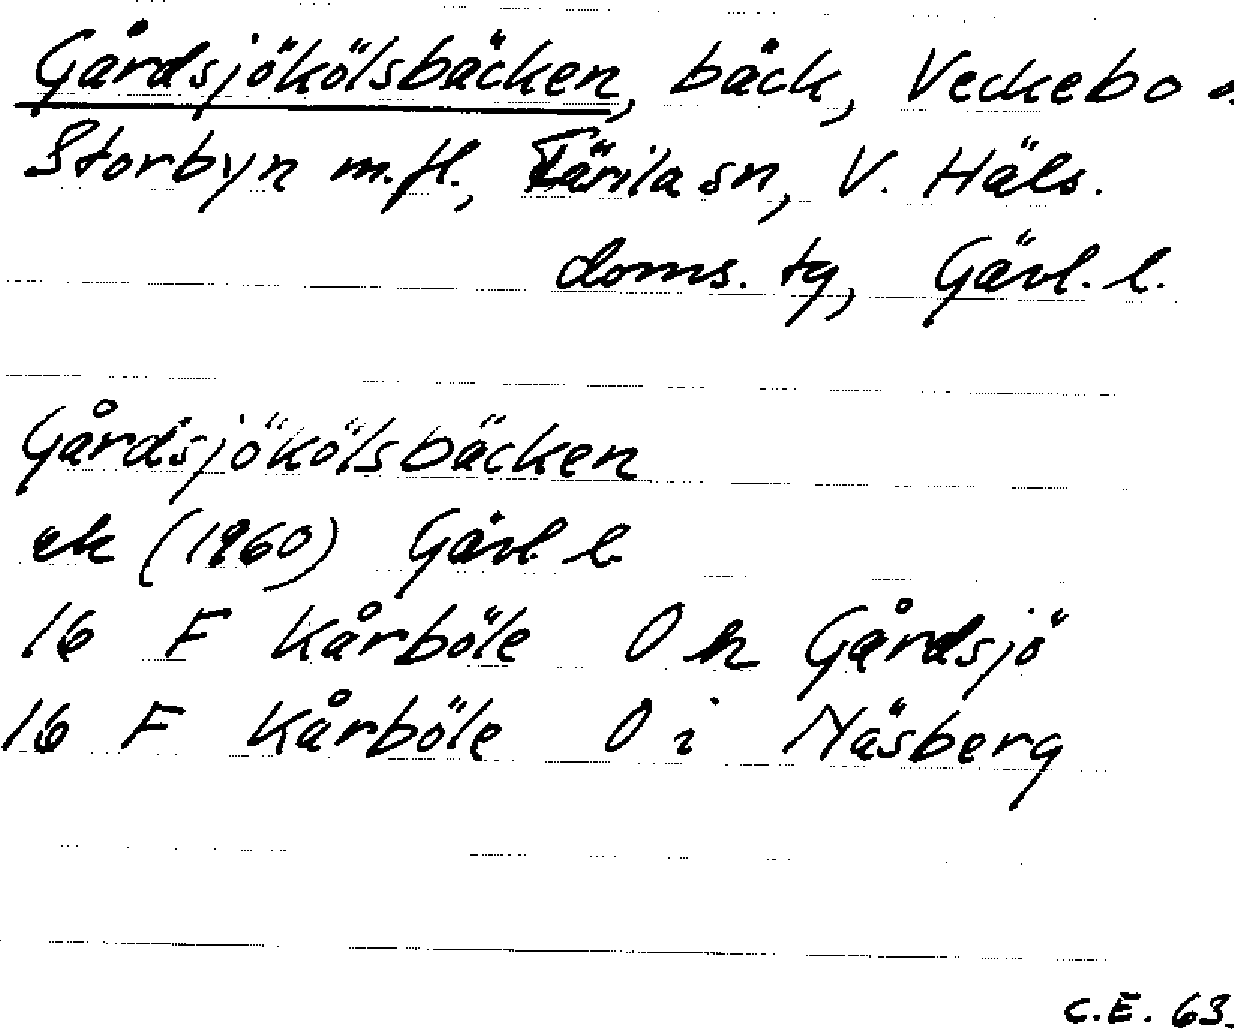 Gårdsjökölsbäcken, bäck, Veckebo o.
Storbyn m.fl., Färila sn, V. Häls.
doms. tg, Gävl. l.
Gårdsjökölsbäcken
ek (1960) Gävl. l.
16 F Kårböle 0 h Gårdsjö
16 F Kårböle 0 i Näsberg
C.E. 63.